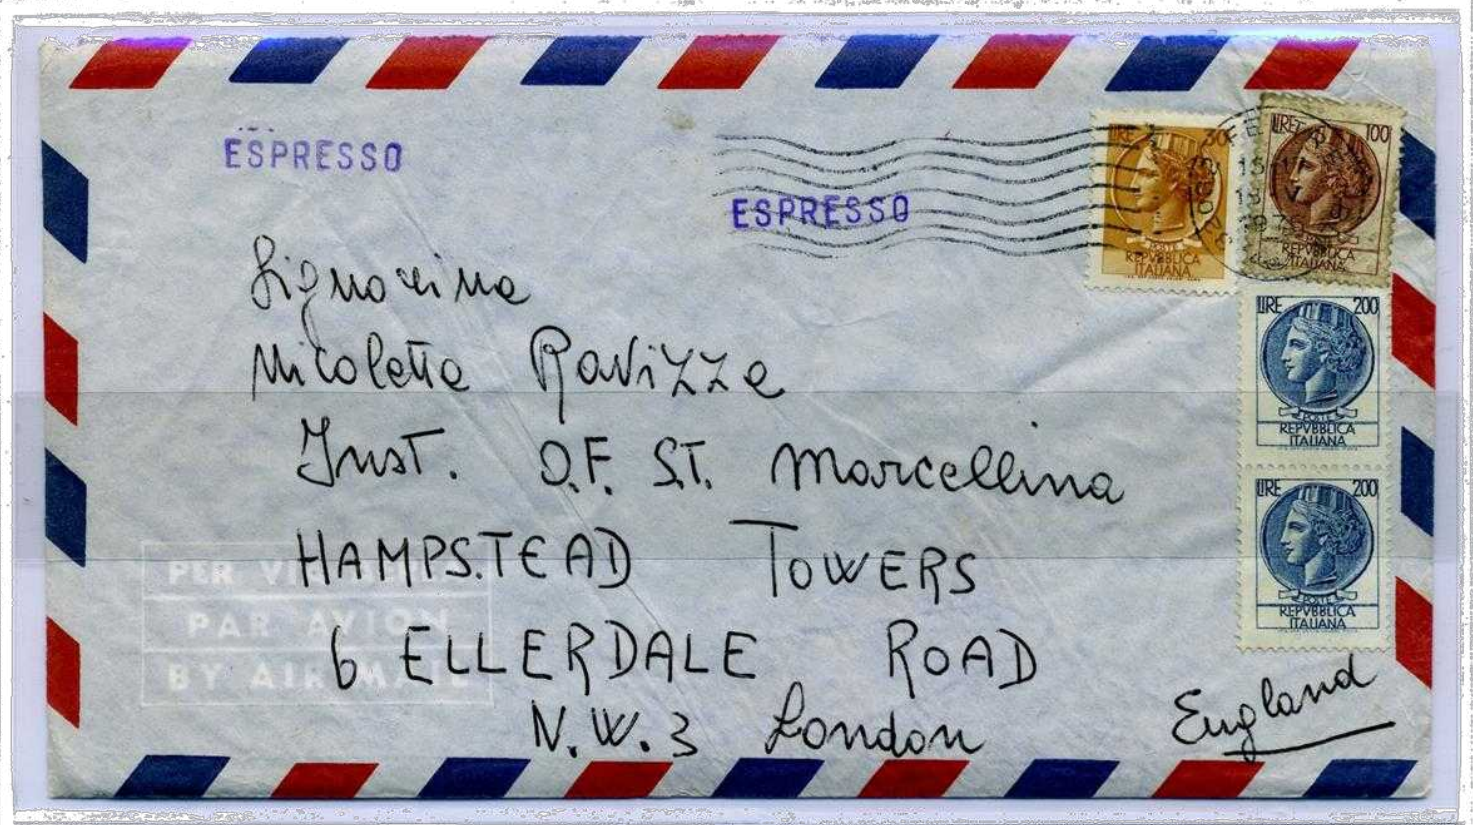 ESPRESSO
ESPRESSO
LIRE 30
REPVBBLICA
ITALIANA
LIRE 100
REPVBBLICA
ITALIANA
LIRE 200
POSTE
REPVBBLICA
ITALIANA
LIRE 200
POSTE
REPVBBLICA
ITALIANA
Signorina
Nicoletta Ravizza
Inst. O.F. S.T. Marcellina
HAMPSTEAD TOWERS
6 ELLERDALE ROAD
N.W.3 London
England
PER VIA
PAR AVION
BY AIR MAIL